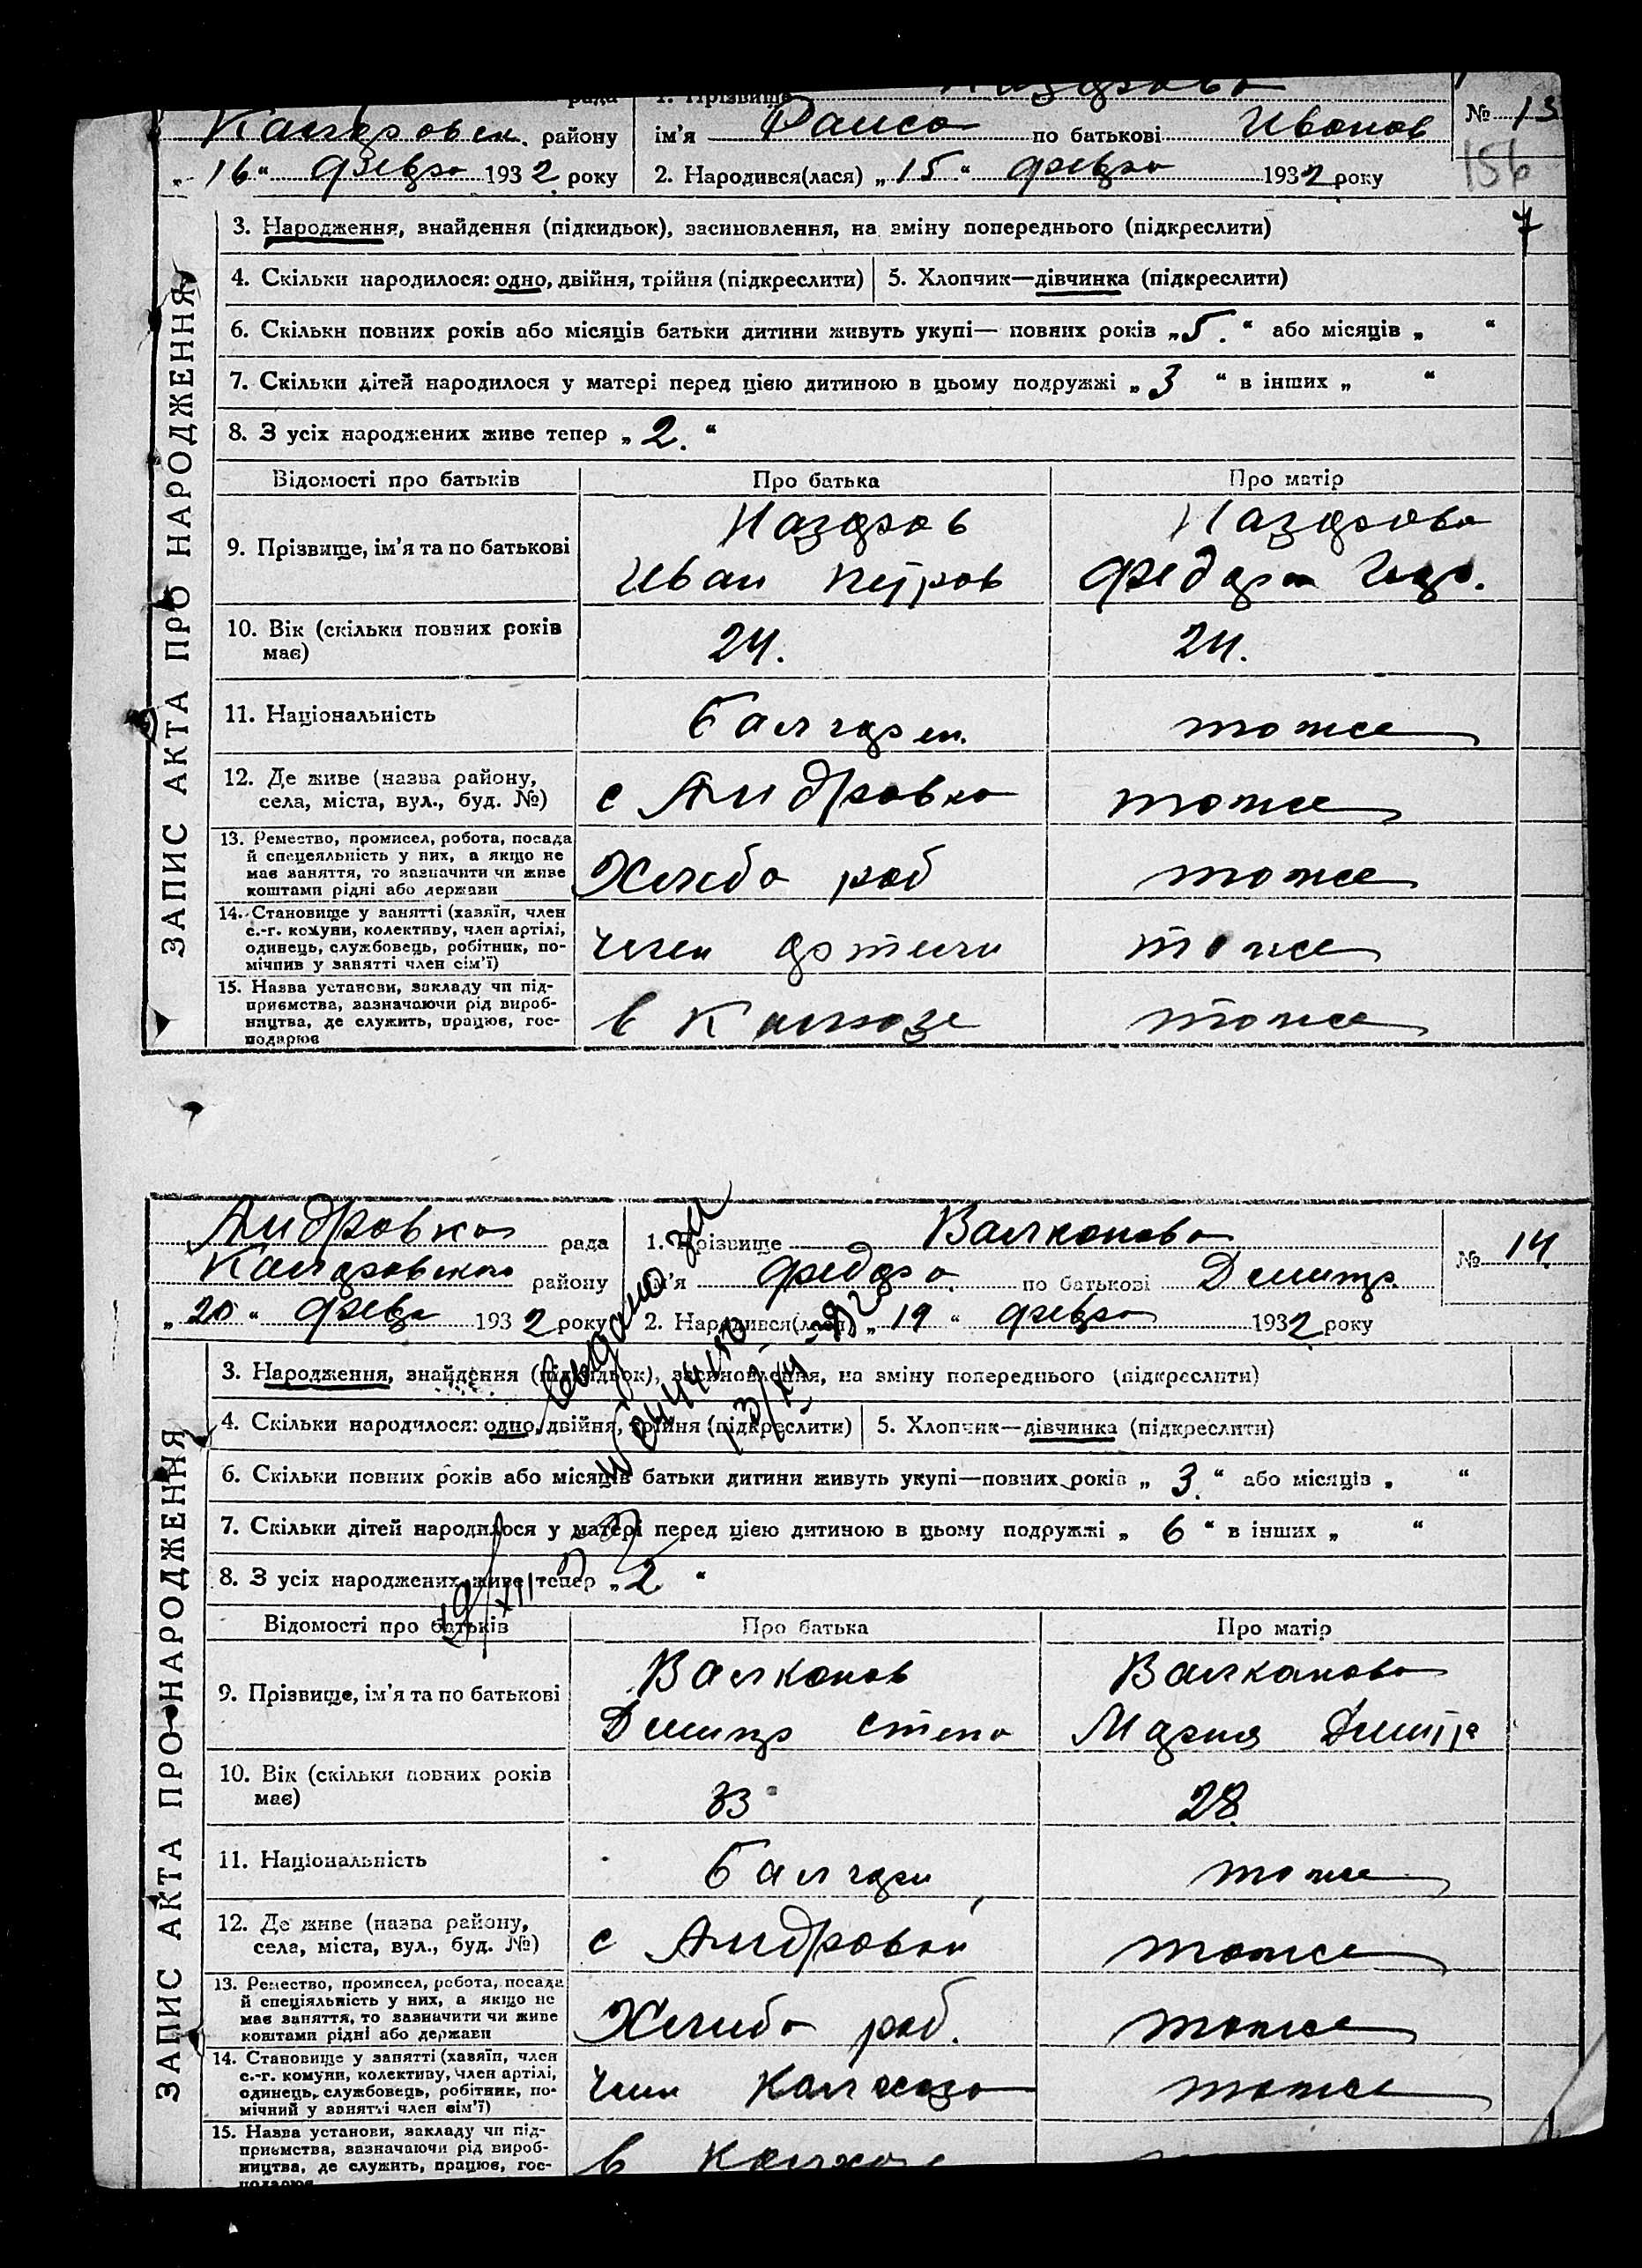 рада 1. Прізвище
№ 13
району ім'я Раиса по батькові Иванов
156
„ 16 “ февра 1932 року 2. Народився(лася) „ 15 “ февра 1932 року
7
3. Народження, знайдення (підкидьок), засиновлення, на зміну попереднього (підкреслити)
4. Скільки народилося: одно, двійня, трійня (підкреслити) 5. Хлопчик—дівчинка (підкреслити)
6. Скільки повних років або місяців батьки дитини живуть укупі— повних років „ 5. “ або місяців „ “
7. Скільки дітей народилося у матері перед цією дитиною в цьому подружжі „ 3 “ в інших „ “
8. З усіх народжених живе тепер „ 2. “
Відомості про батьків Про батька Про матір
9. Прізвище, ім'я та по батькові
Иван Петров
10. Вік (скільки повних років
має) 24. 24.
11. Національність Балгарин. тоже
12. Де живе (назва району,
села, міста, вул., буд. №) с Андровка тоже
13. Ремество, промисел, робота, посада
й спецеяльність у них, а якщо не
має заняття, то зазначити чи живе
коштами рідні або держави Хлебо роб тоже
14. Становище у занятті (хазяїн, член
с.-г. комуни, колективу, член артілі,
одинець, службовець, робітник, по-
мічпив у занятті член сім'ї) член артели тоже
15. Назва установи, закладу чи під-
приємства, зазначаючи рід вироб-
ництва, де служить, працює, гос-
подарює в Колхозе тоже
ЗАПИС АКТА ПРО НАРОДЖЕННЯ
Андровка рада 1. Прізвище Валканова
№ 14.
району ім'я Федора по батькові Демитр.
„ 20 “ февра 1932 року 2. Народився(лася) „ 19 “ февра 1932 року
3. Народження, знайдення (підкидьок), засиновлення, на зміну попереднього (підкреслити)
4. Скільки народилося: одно, двійня, трійня (підкреслити) 5. Хлопчик—дівчинка (підкреслити)
6. Скільки повних років або місяців батьки дитини живуть укупі—повних років „ 3. “ або місяців „ “
7. Скільки дітей народилося у матері перед цією дитиною в цьому подружжі „ 6 “ в інших „ “
8. З усіх народжених живе тепер „ 2 “
Відомості про батьків Про батька Про матір
Валканов Валканова
9. Прізвище, ім'я та по батькові
Демитр Степа Мария Дмитр
10. Вік (скільки повних років
має) 33 28.
11. Національність Балгарин тоже
12. Де живе (назва району,
села, міста, вул., буд. №) с Андровки тоже
13. Ремество, промисел, робота, посада
й спеціяльність у них, а якщо не
має заняття, то зазначити чи живе
коштами рідні або держави Хлебо роб. тоже
14. Становище у занятті (хазяїн, член
с.-г. комуни, колективу, член артілі,
одинець, службовець, робітник, по-
мічний у занятті член сім'ї) член Колхоза тоже
15. Назва установи, закладу чи під-
приємства, зазначаючи рід вироб-
ництва, де служить, працює, гос-
подарює в Колхозе
ЗАПИС АКТА ПРО НАРОДЖЕННЯ